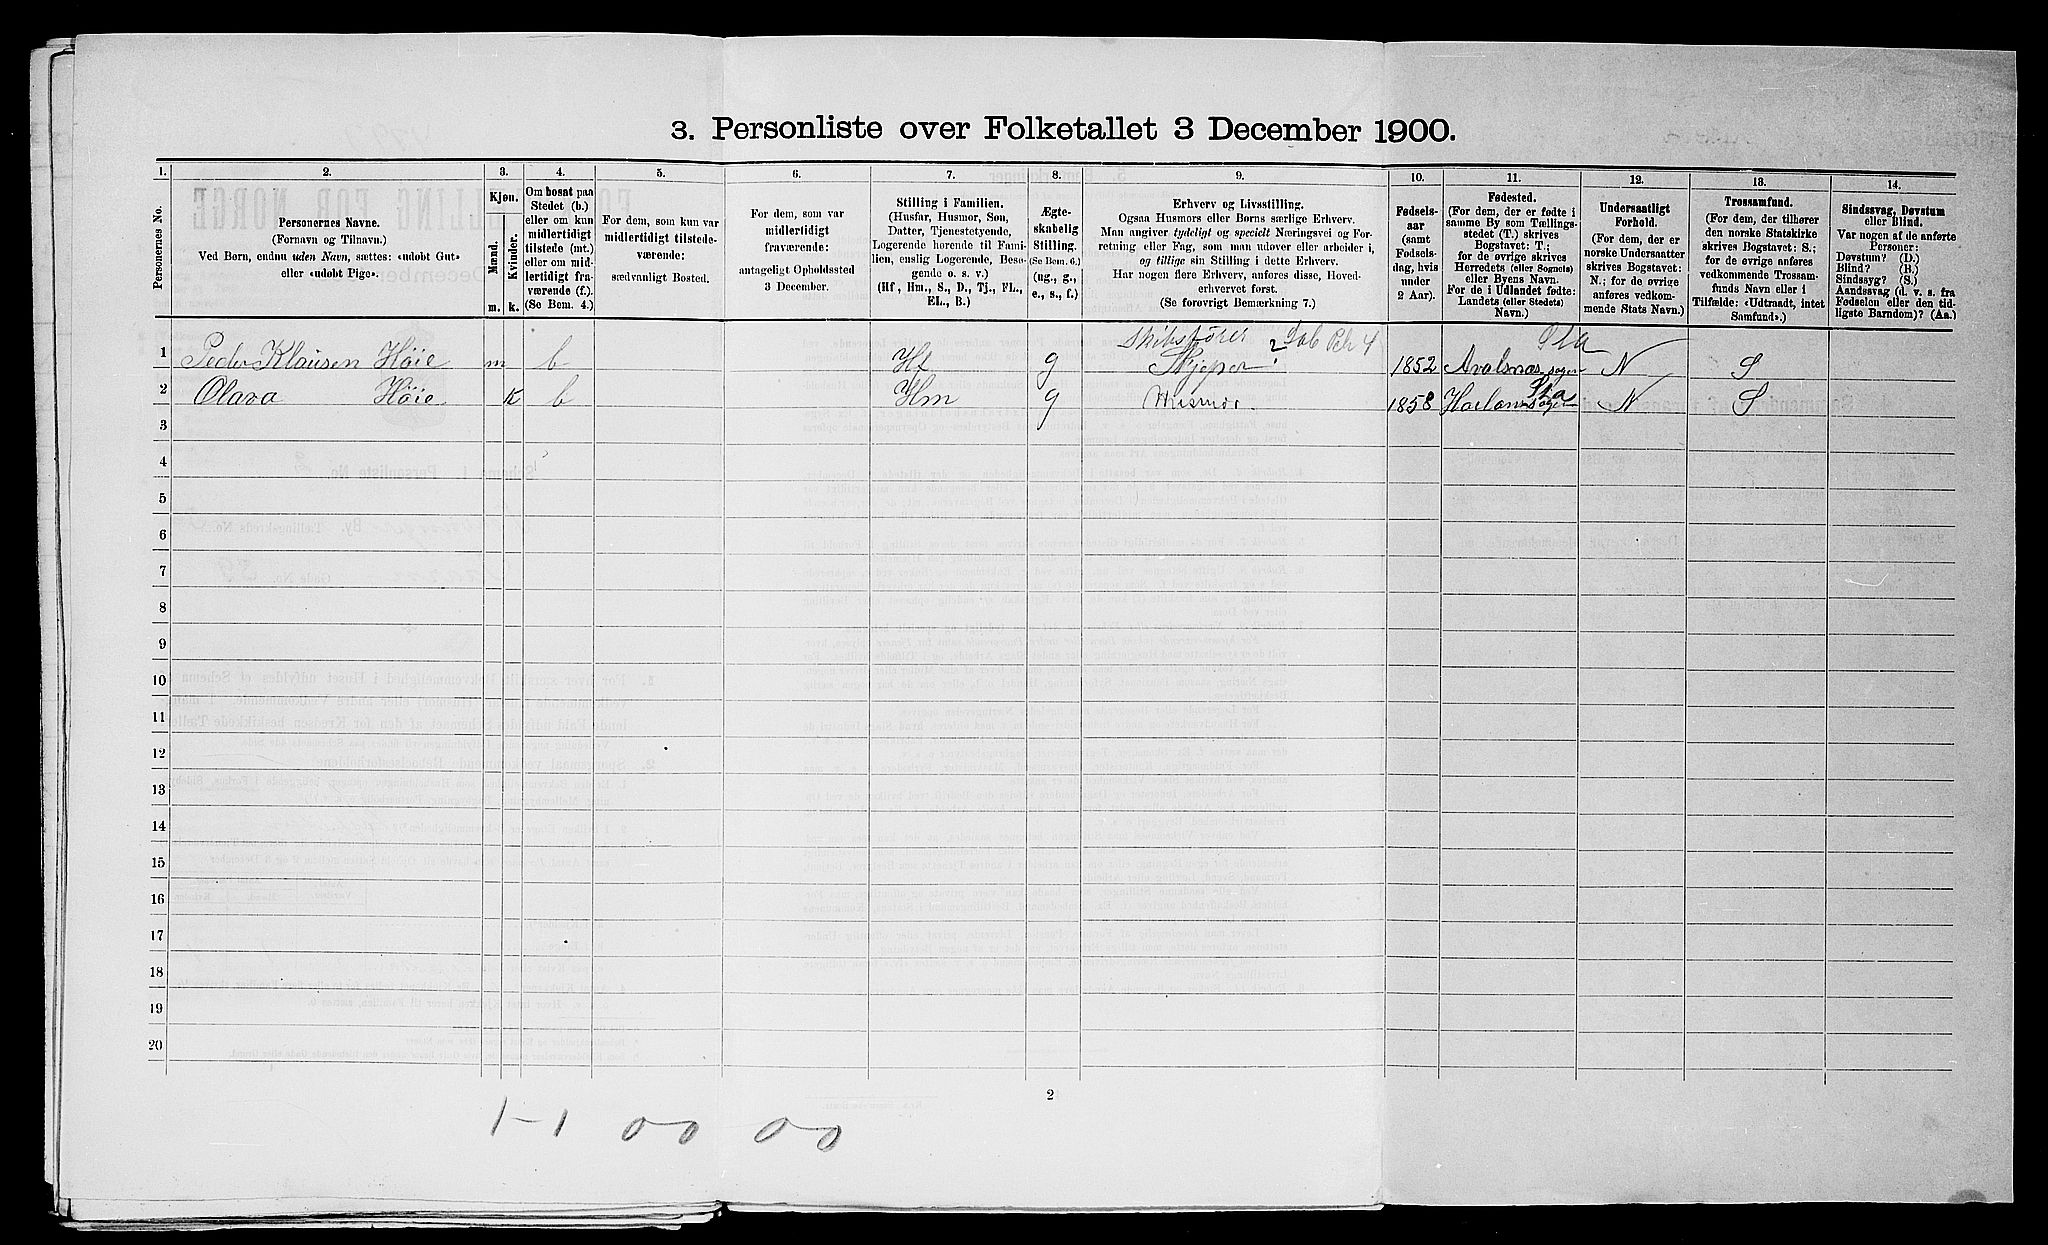 3. Personliste over Folketallet 3 December 1900.
1. 2. 3. 4. 5. 6. 7. 8. 9. 10. 11. 12. 13. 14.
Personernes No.
Personernes Navne.
(Fornavn og Tilnavn.)
Ved Børn, endnu uden Navn, sættes: «udøbt Gut»
eller «udøbt Pige».
Kjøn.
Mænd.
Kvinder.
m. k.
Om bosat paa
Stedet (b.)
eller om kun
midlertidigt
tilstede (mt.)
eller om mid-
lertidigt fra-
værende (f.).
(Se Bem. 4.)
For dem, som kun var
midlertidigt tilstede-
værende:
sædvanligt Bosted.
For dem, som var
midlertidigt
fraværende:
antageligt Opholdssted
3 December.
Stilling i Familien.
(Husfar, Husmor, Søn,
Datter, Tjenestetyende,
Logerende hørende til Fami-
lien, enslig Logerende, Besø-
gende o. s. v.)
(Hf., Hm., S., D., Tj., FL.,
EL., B.)
Ægte-
skabelig
Stilling.
(Se Bem. 6.)
(ug., g.,
e., s., f.)
Erhverv og Livsstilling.
Ogsaa Husmors eller Børns særlige Erhverv.
Man angiver tydeligt og specielt Næringsvei og For-
retning eller Fag, som man udøver eller arbeider i,
og tillige sin Stilling i dette Erhverv.
Har nogen flere Erhverv, anføres disse, Hoved-
erhvervet først.
(Se forøvrigt Bemærkning 7.)
Fødsels-
aar
(samt
Fødsels-
dag, hvis
under
2 Aar).
Fødested.
(For dem, der er fødte i
samme By som Tællings-
stedet (T.) skrives
Bogstavet: T.;
for de øvrige skrives
Herredets (eller Sognets)
eller Byens Navn.
For de i Udlandet fødte:
Landets (eller Stedets)
Navn.)
Undersaatligt
Forhold.
(For dem, der er
norske Undersaatter
skrives Bogstavet:
N.; for de øvrige
anføres vedkom-
mende Stats Navn.)
Trossamfund.
(For dem, der tilhører
den norske Statskirke
skrives Bogstavet: S.;
for de øvrige anføres
vedkommende Trossam-
funds Navn eller i
Tilfælde: «Udtraadt, intet
Samfund».)
Sindssvag, Døvstum
eller Blind.
Var nogen af de anførte
Personer:
Døvstum? (D.)
Blind? (B.)
Sindssyg? (S.)
Aandssvag (d. v. s. fra
Fødselen eller den tid-
ligste Barndom)? (Aa.)
Skibsfører Sta
1 Peder Klausen Høie m b Hf g Skjeper 1852 Avalsnæs sogn N S
Sta
2 Olava Høie K b Hm g Husmor. 1858 N S
3
4
5
6
7
8
9
10
11
12
13
14
15
16
17
18
19
20
2
1-1 00 00